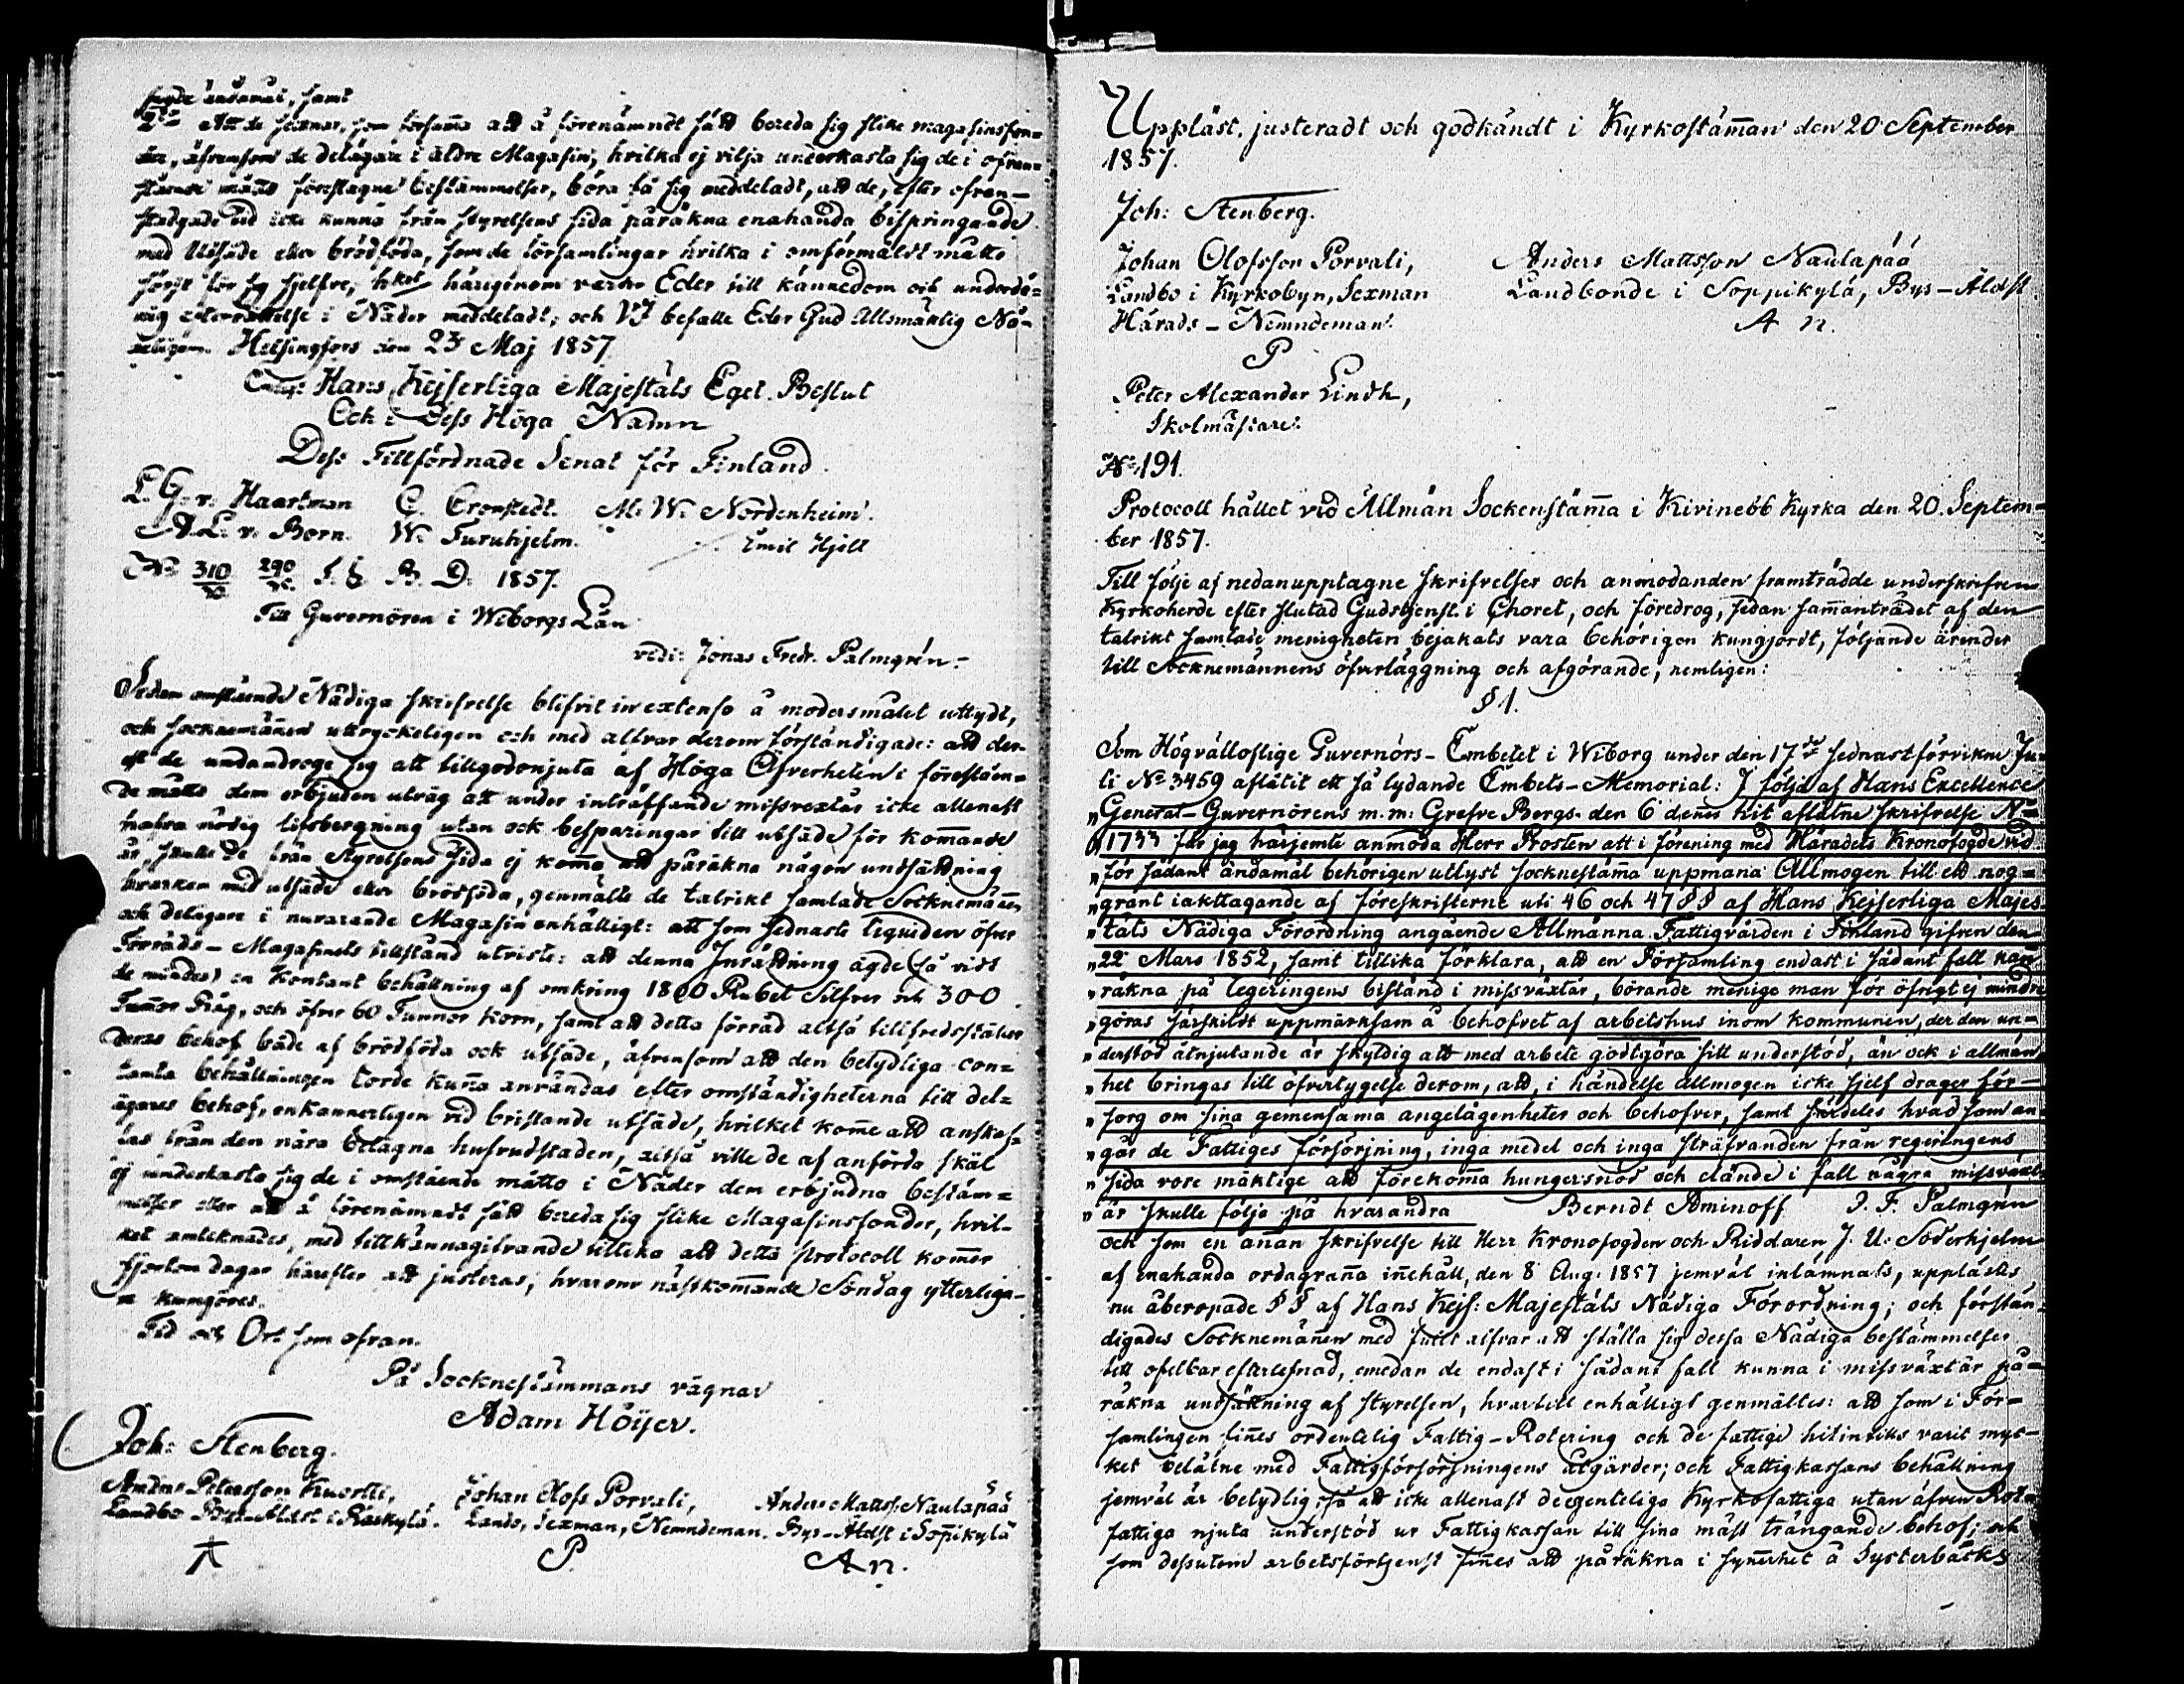 samt
2:o Att de som försama att å förenämndt sätt bereda sig slike magasinsfon=
der, äfvensom de delägare i äldre Magasin, hvilka ej vilja underkasta sig de i ofvan=
stående måtto föreslagne bestämmelser, böra få sig meddeladt, att de, efter ofvan-
stadgade tid icke kunna från styrelsens sida påräkna enahanda bispringande
med Utsäde eller brödföda, som de församlingar hvilka i omförmäldt måtto
sörjt för sig sjelfve, hket härigenom varder Eder till kännedom och underdå=
nig efterrättelse i Nåder meddeladt; och VJ befalle Eder Gud Allsmäktig Nå-
deligen. Helsingfors den 23 Maj 1857
Enligt Hans Kejserliga Majestäts Eget Beslut
Och i Dess Höga Namn
Dess Tillförordnade Senat för Finland
L. G. v. Haartman C. Cronstedt. M. W. Nordenheim.
A. L. v. Born. W. Furuhjelm. Emil Hjelt
No 310 290 B. D. 1857.
Till Guvernören i Wiborgs Län
vidi: Jonas Fredr. Palmgrén.
Sedan omstående Nådiga skrifvelse blifvit in extenso å modersmålet uttydt,
och sockenemännen uttryckeligen och med allvar derom förståndigade: att der-
est de undandroge sig att tillgodonjuta af Höga Öfverheten i förestån-
de måtto dem erbjuden utväg att under inträffande missvextår icke allenast
hafva nödig lifsbergning utan ock besparingar till utsäde för kommande
år, skulle de från Styrelsens sida ej komma att påräkna någon undsättning
hvarken med utsäde eller brödföda, genmälte de talrikt samlade Socknemänen
och delägare i nuvarande Magasin enhälligt: att som sednaste liquiden öfver
Förråds-Magasinets tillstånd utviste: att denna Inrättning ägde (så vidt
de mindes) en Kontant behållning af omkring 1800 Rubel Silfver och 300
Tunnor Råg, och öfver 60 Tunnor Korn, samt att detta förråd altså tillfredsställer
deras behof både af brödföda och utsäde, äfvensom att den betydliga con=
tanta behållningen torde kunna användas efter omständigheterna till del=
ägares behof, enkannerligen vid bristande utsäde, hvilket kome att anskaf=
fas från den nära belägna hufvudstaden, altså ville de af anförda skäl
ej underkasta sig de i omstående måtto i Nåder dem erbjudna bestäm=
melser eller att å förenämndt sätt bereda sig slike Magasinsfonder, hvil-
ket antecknades, med tillkännagifvande tillika att detta Protocoll kommer
fjorton dagar härefter att justeras, hvarom nästkommande Söndag ytterliga-
re kungöres.
Tid och Ort som ofvan.
På Sockenestämmans vägnar
Adam Höijer.
Joh: Stenberg.
Andrs Petersson Kuortti, Johan Olofs. Porvali, Anders Mattss. Naulapää
Landbo Bys-Äldst i Räskylä. Landb, Sexman, Nemndeman. Bys-Äldst i Sopikylä
P A n.
Uppläst, justeradt och godkändt i Kyrkostämman den 20 September
1857.
Joh: Stenberg.
Johan Olofsson Porvali, Anders Mattsson Naulapää
Landbo i Kyrkobyn, Sexman Landbonde i Soppikylä, Bys-Äldst
Härads-Nemndeman. A n.
P
Peter Alexander Lindh,
Skolmästare.
No 191.
Protocoll hållet vid Allmän Sockenstämma i Kivinebb Kyrka den 20. Septem-
ber 1857.
Till följe af nedanupptagne skrifvelser och anmodanden framträdde underskrifven
Kyrkoherde efter slutad Gudstjenst i Choret, och föredrog, sedan samanträdet af den
talrikt samlade menigheten bejakats vara behörigen kungjordt, följande ärender
till Socknemännens öfverläggning och afgörande, nemligen:
§ 1.
Som Högvälloflige Guvernörs-Embetet i Wiborg under den 17de sednast förvikne Ju-
li No 3459 aflåtit ett så lydande Embets-Memorial: I följe af Hans Excellence
„General-Guvernörens m. m. Grefve Bergs den 6 denes hit aflåtne skrifvelse No
„1733 får jag härjemte anmoda Herr Prosten att i förening med Häradets Kronofogde vid
„för sådant ändamål behörigen utlyst sockenestäma uppmana Allmogen till ett nog=
„grant iakttagande af föreskrifterne uti 46 och 47 §§ af Hans Kejserliga Majes-
„täts Nådiga Förordning angående Allmänna Fattigvården i Finland gifven den
„22 Mars 1852, samt tillika förklara, att en Församling endast i sådant fall kan
„räkna på regeringens bistånd i missväxtår, börande menige man för öfrigt ej mindre
„göras särskildt uppmärksam å behofvet af arbetshus inom kommunen, der den un-
„derstöd åtnjutande är skyldig att med arbete godtgöra sitt understöd, än ock i allmän
„het bringas till öfvertygelse derom, att, i händelse allmogen icke sjelf drager för-
„sorg om sina gemensamma angelägenheter och behofver, samt särdeles hvad som an-
„går de Fattiges försörjning, inga medel och inga sträfvanden från regeringens
„sida vore mäktige att förekomma hungersnöd och elände i fall några missväxt-
„år skulle följa på hvarandra Berndt Aminoff J. F. Palmgrén
och som en annan skrifvelse till Herr Kronofogden och Riddaren J. U. Söderhjelm
af enahanda ordagranna inehåll, den 8 Aug. 1857 jemväl inlämnats, upplästes
nu åberopade §§ af Hans Kejs: Majestäts Nådiga Förordning; och förstän-
digades Socknemännen med fullt alfvar att ställa sig dessa Nådiga bestämmelser
till ofelbar efterlefnad, emedan de endast i sådant fall kunna i missväxtår på-
räkna undsättning af styrelsen, hvartill enhälligt genmältes: att som i För-
samlingen fines ordentelig Fattig-Rotering och de fattige hitintills varit myc-
ket belåtne med Fattigförsörjningens åtgärder; och Fattigkassans behållning
jemväl är betydlig, så att icke allenast de egenteliga Kyrkofattiga utan äfven Rot-
fattiga njuta understöd ur Fattigkassan till sina mäst trängande behof; och
som dessutom arbetsförtjenst fines att påräkna i synerhet å Systerbäcks